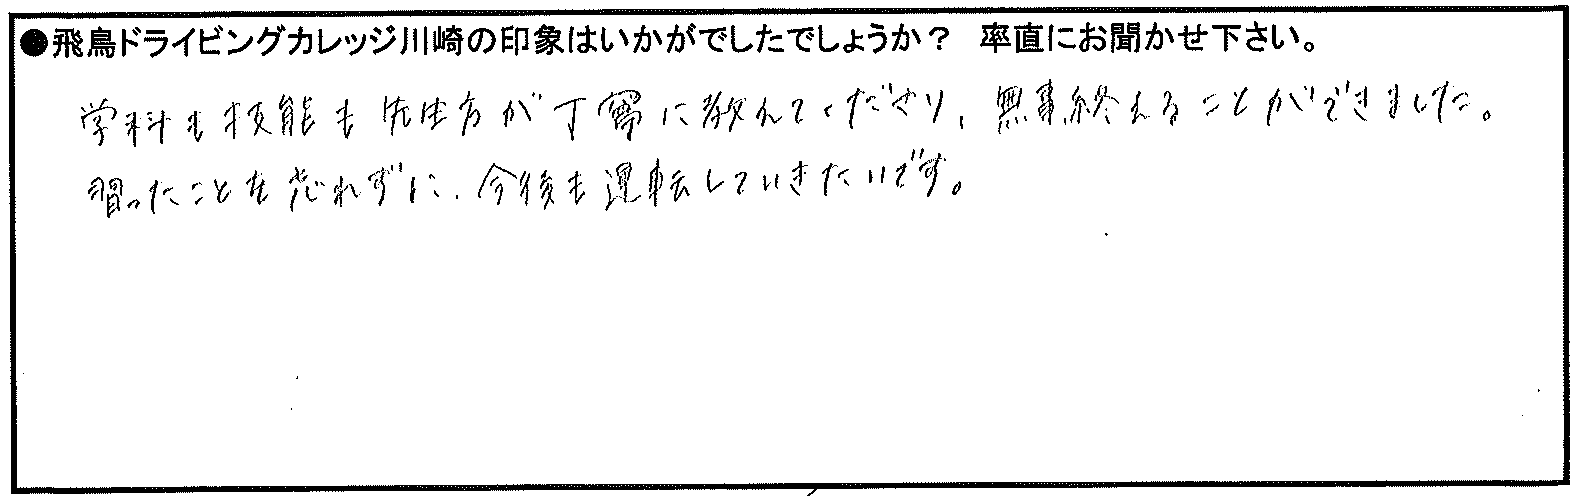 ●飛鳥ドライビングカレッジ川崎の印象はいかがでしたでしょうか？　率直にお聞かせ下さい。
学科も技能も先生方が丁寧に教えてくださり、無事終えることができました。
習ったことを忘れずに、今後も運転していきたいです。